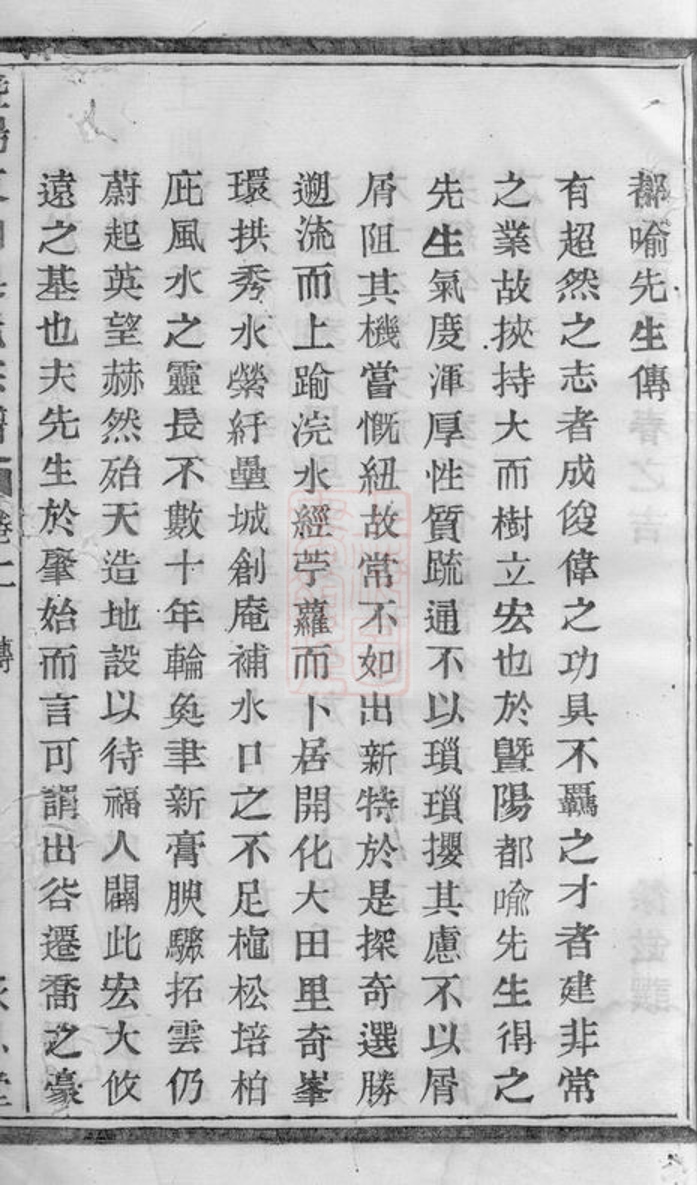 都喻先生傳
有超然之志者成俊偉之功具不羈之才者建非常
之業故挾持大而樹立宏也於暨陽都喻先生得之
先生氣度渾厚性質疏通不以瑣瑣攖其慮不以屑
屑阻其機嘗慨紐故常不如出新特於是探奇選勝
遡流而上踰浣水經苧蘿而卜居開化大田里奇峯
環拱秀水縈紆壘城創庵補水口之不足植松培柏
庇風水之靈長不數十年輪奐聿新膏腴驟拓雲仍
蔚起英望赫然殆天造地設以待福人闢此宏大攸
遠之基也夫先生於肇始而言可謂出谷遷喬之豪
傳